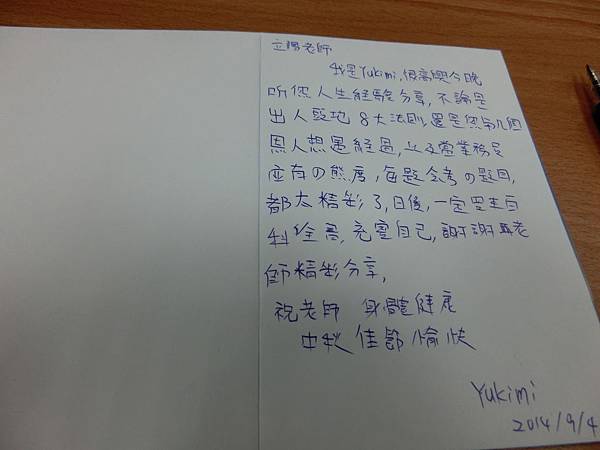 立陽老師
我是Yukimi,很高興今晚
聽您人生經驗分享,不論是
出人頭地8大法則,還是您與九個
恩人想遇經過,以及當業務員
應有の態度,每題会考の題目,
都太精彩了,日後,一定要去
充實自己,謝謝老
師精彩分享,
祝老師 身體健康
中秋佳節愉快
Yukimi
2014/9/4